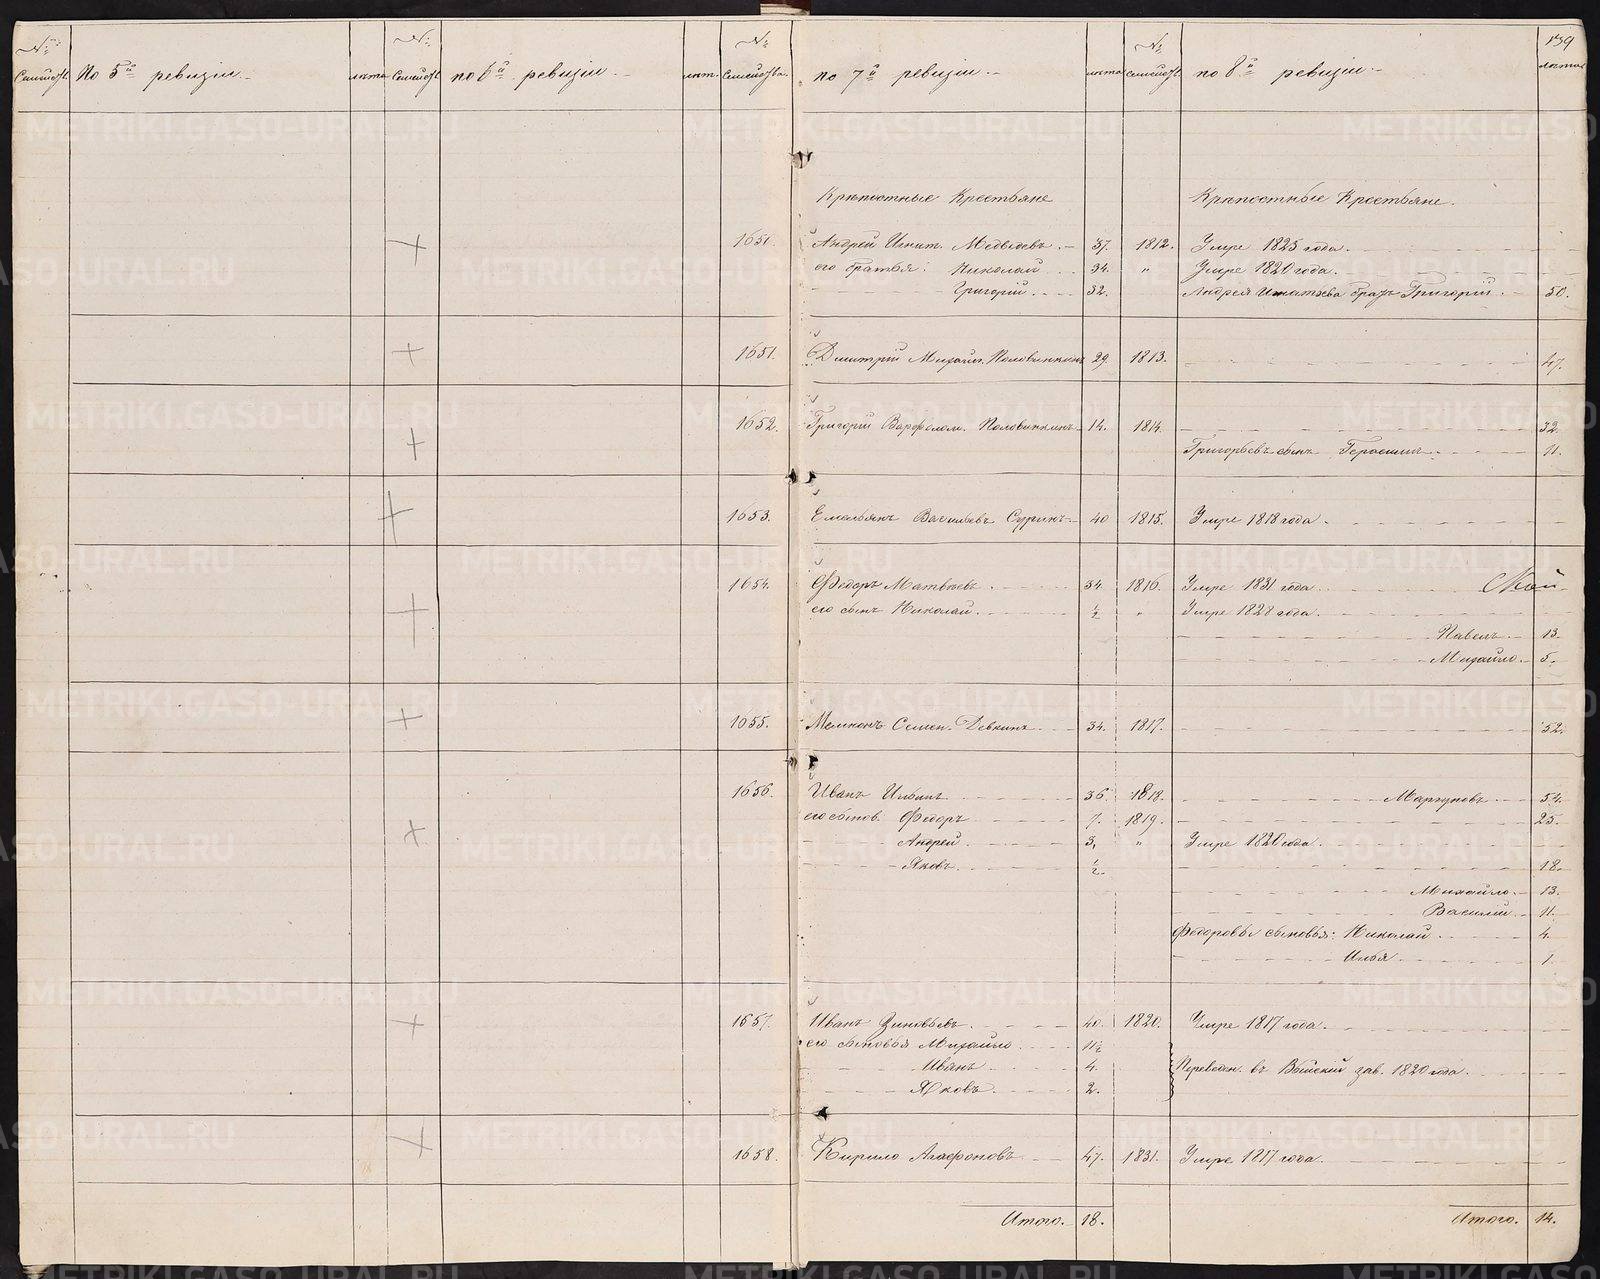 139
№ Семейств. По 5й ревизии. лета № Семейств. по 6й ревизии. лет. № Семейства. по 7й ревизии. лета № Семейств. по 8й ревизии. лета
Крѣпостные Крестьяне Крѣпостные Крестьяне.
1650. Андрей Игнат. Медведевъ. 37. 1812. Умре 1825 года.
его братья: Николай 34. " Умре 1820 года.
Григорій. 32. Андрея Игнатьева братъ Григорій. 50.
1651. Дмитрій Михайл. Половинкинъ 29. 1813. 47.
1652. Григорій Варфолом. Половинкинъ 14. 1814. 32.
Григорьевъ сынъ Герасимъ. 11.
1653. Емельянъ Васильевъ Суринъ 40 1815. Умре 1818 года.
1654. Федоръ Матвѣевъ. 34. 1816. Умре 1831 года.
его сынъ Николай. ½ " Умре 1828 года.
Павелъ. 13.
Михайло. 5.
1655. Семен. Девкинъ. 34. 1817. 52.
1656. Иванъ Ильинъ. 36. 1818. 54.
его сынов. Федоръ 7. 1819. 25.
Андрей. 3. " Умре 1820 года.
Яковъ. ½ 18.
Михайло. 13.
Василий. 11.
Федоровы сыновья: Николай. 4.
Илья. 1.
1657. Иванъ Зиновьевъ. 40. 1820. Умре 1817 года.
его сыновья Михайло. 11½
Иванъ 4. Переведен. въ зав. 1820 года.
Яковъ. 2.
1658. Кирило Агафоновъ 47. 1831. Умре 1817 года.
Итого. 18. Итого. 14.
METRIKI.GASO-URAL.RU